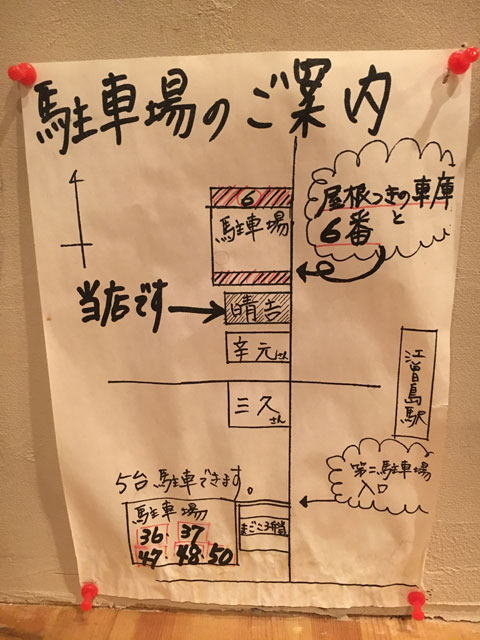 駐車場のご案内
屋根つきの車庫
と
6番
6
駐車場
当店です
晴吉
辛元さん
三久
さん
江曽島駅
第二駐車場
入口
5台駐車できます。
駐車場
36・37
47・48・50
まごころ弁当